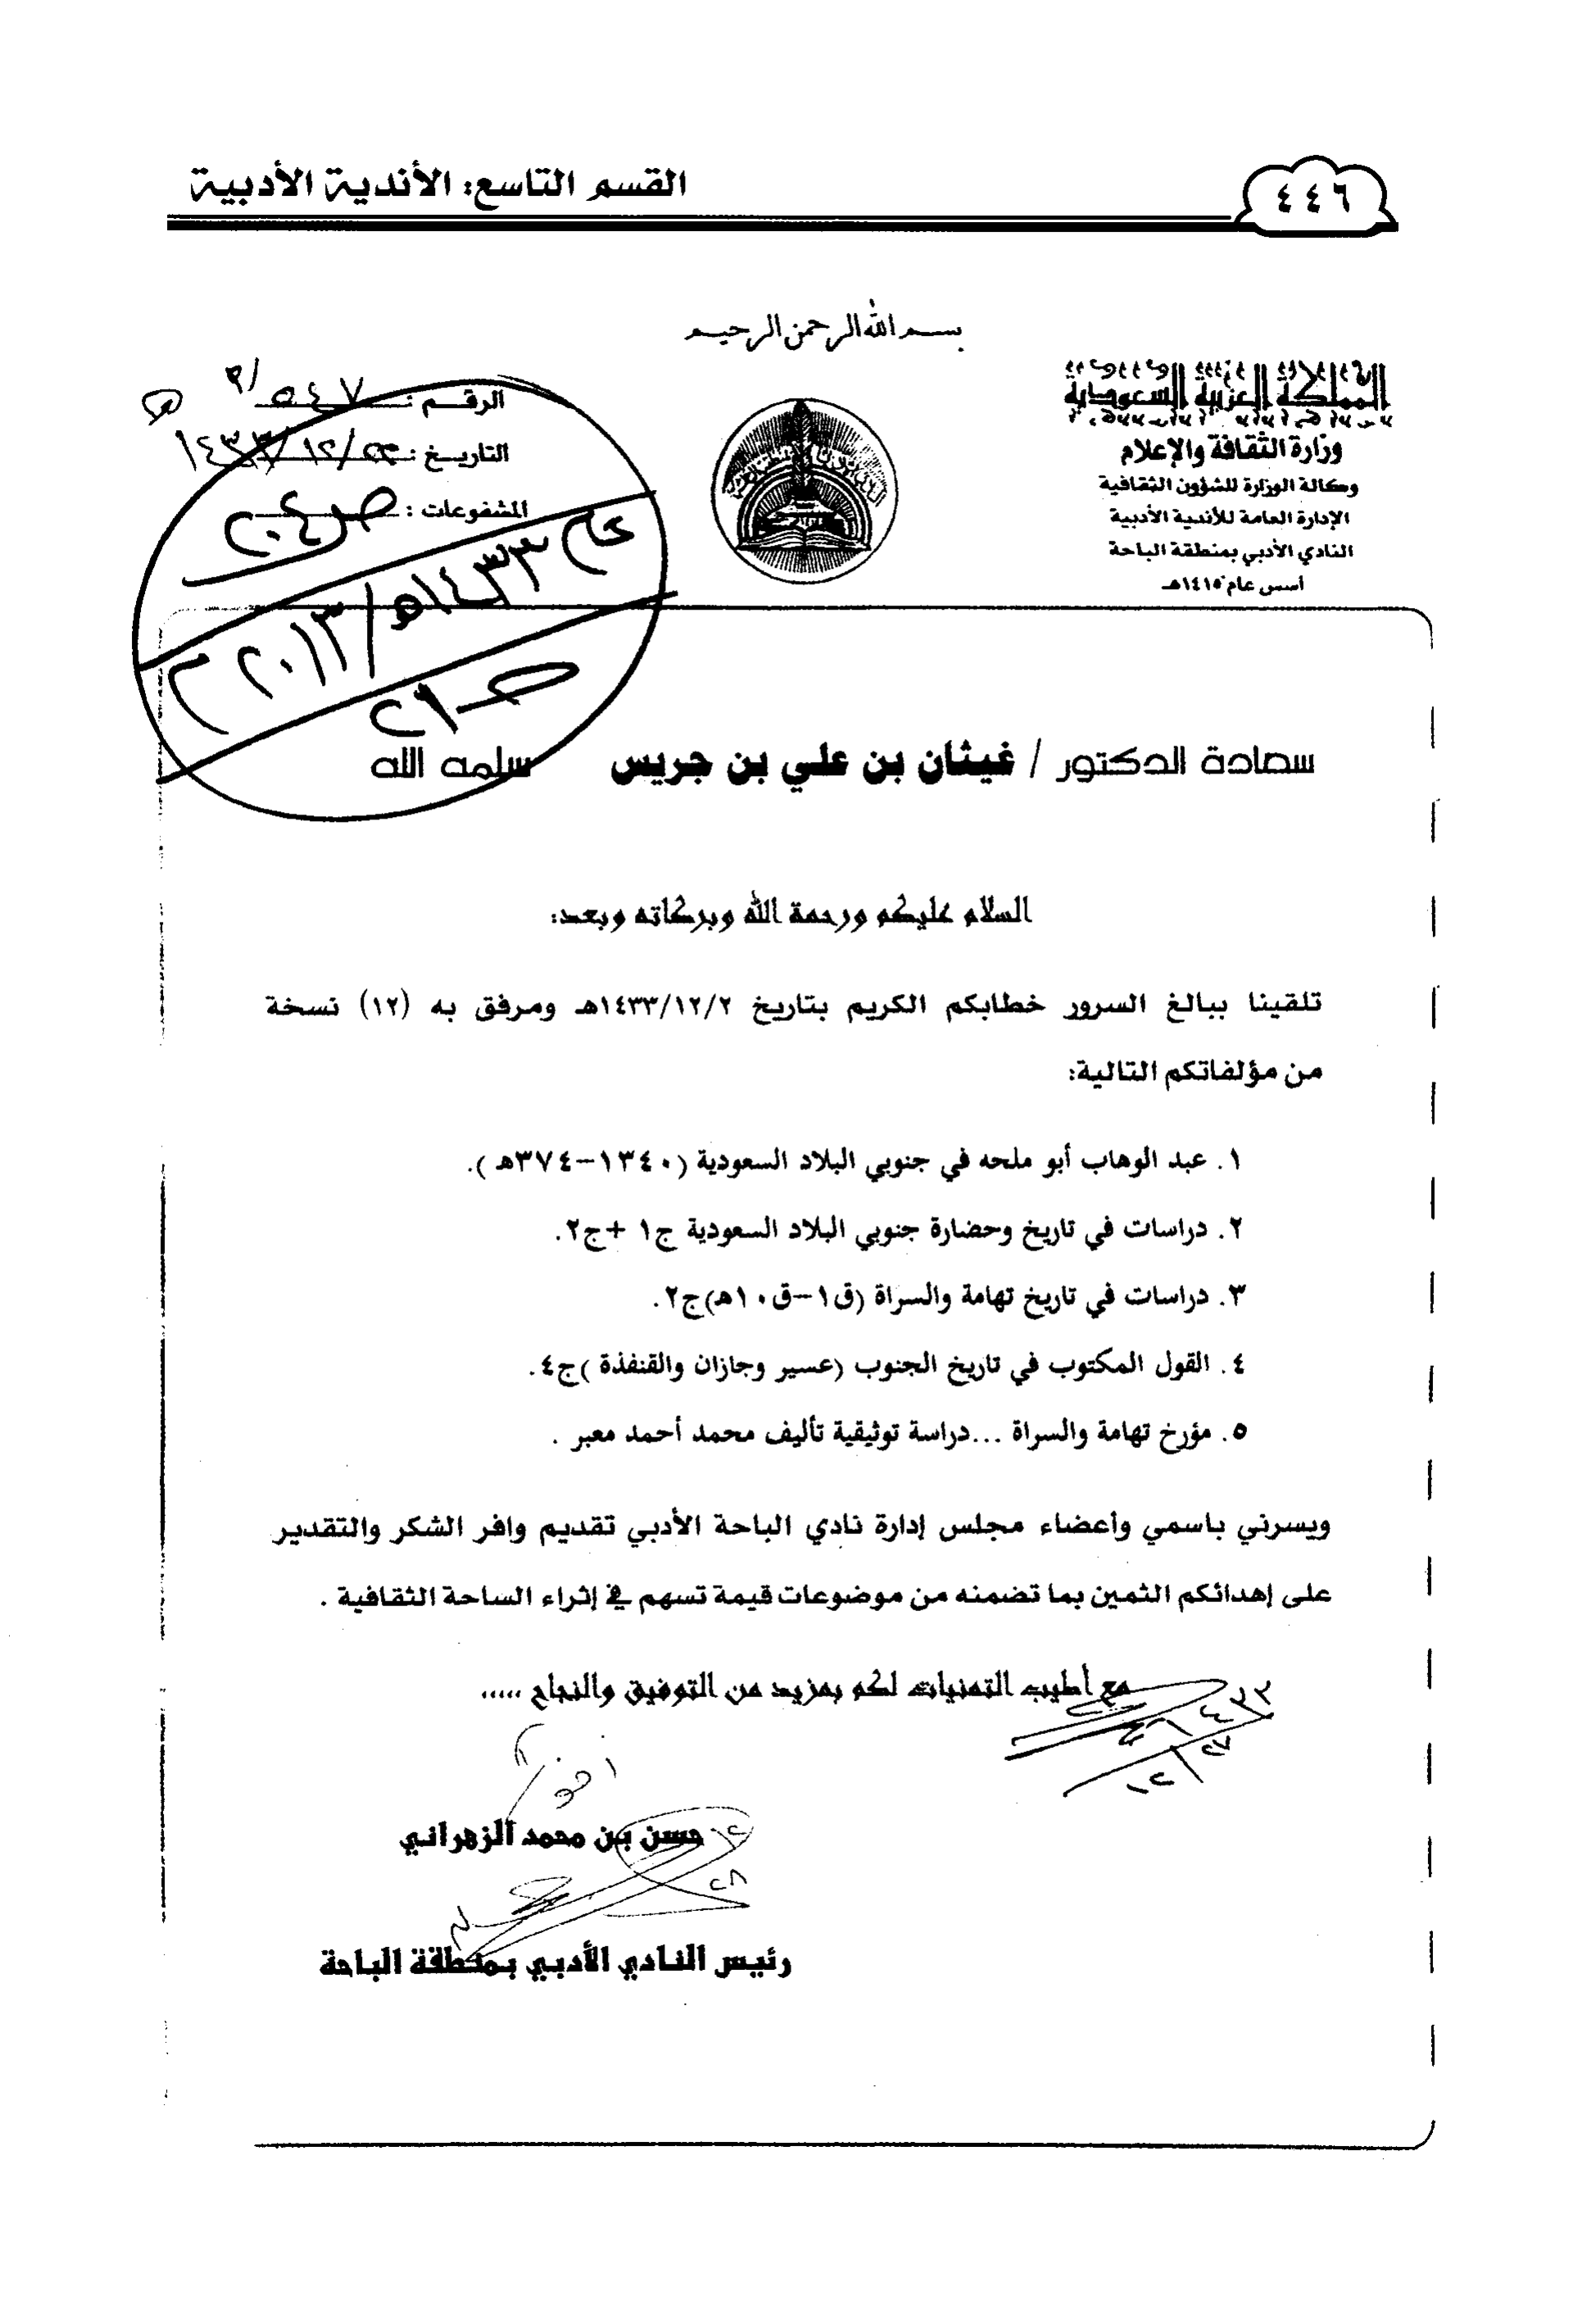 ٤٤٦
القسم التاسع: الأندية الأدبية
بسم الله الرحمن الرحيم
المملكة العربية السعودية
وزارة الثقافة والإعلام
وكالة الوزارة للشؤون الثقافية
الإدارة العامة للأندية الأدبية
النادي الأدبي بمنطقة الباحة
أسس عام ١٤١٥هـ
الرقم : ٥٤٧
التاريخ : ١٤٣٣/١٢/٢٣
المشفوعات :
ص ٢٠٤
عام ١٤٣٣هـ/٢٠١٣م
سعادة الدكتور / غيثان بن علي بن جريس سلمه الله
السلام عليكم ورحمة الله وبركاته وبعد:
تلقينا ببالغ السرور خطابكم الكريم بتاريخ ١٤٣٣/١٢/٢هـ ومرفق به (١٢) نسخة
من مؤلفاتكم التالية:
١. عبد الوهاب أبو ملحه في جنوبي البلاد السعودية (١٣٤٠-٣٧٤هـ).
٢. دراسات في تاريخ وحضارة جنوبي البلاد السعودية ج١ +ج٢.
٣. دراسات في تاريخ تهامة والسراة (ق١-ق١٠هـ)ج٢.
٤. القول المكتوب في تاريخ الجنوب (عسير وجازان والقنفذة )ج٤.
٥. مؤرخ تهامة والسراة ...دراسة توثيقية تأليف محمد أحمد معبر .
ويسرني باسمي وأعضاء مجلس إدارة نادي الباحة الأدبي تقديم وافر الشكر والتقدير
على إهدائكم الثمين بما تضمنه من موضوعات قيمة تسهم في إثراء الساحة الثقافية .
مع أطيب التمنيات لكم بمزيد من التوفيق والنجاح .....
حسن بن محمد الزهراني
رئيس النادي الأدبي بمنطقة الباحة